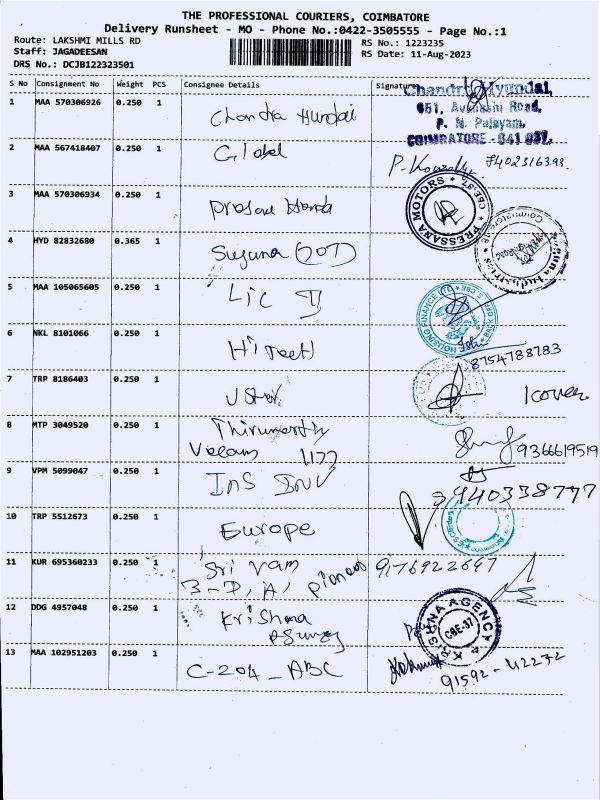 THE PROFESSIONAL COURIERS, COIMBATORE
Delivery Runsheet - MO - Phone No.:0422-3505555 - Page No.:1
Route: LAKSHMI MILLS RD
RS No.: 1223235
Staff: JAGADEESAN
RS Date: 11-Aug-2023
DRS No.: DCJB122323501
S No Consignment No Weight PCS Consignee Details Signature
Chandra Hyundai,
1 MAA 570306926 0.250 1 Chandra Hundai
651, Avanashi Road,
P. N. Palayam,
COIMBATORE - 641 037.
2 MAA 567418407 0.250 1 Global
7402316393
3 MAA 570306934 0.250 1 Honda
PRESSANA MOTORS * CBE-37. *
4 HYD 82832680 0.365 1 Suguna (JOT)
Suguna Industries
5 MAA 105065605 0.250 1 LIC
HOUSING FINANCE
6 NKL 8101066 0.250 1
8754788783
7 TRP 8186403 0.250 1
8 MTP 3049520 0.250 1 Thirumurthy
9366619519
9 VPM 5099047 0.250 1
9940338777
10 TRP 5512673 0.250 1 Europe
11 KUR 695360233 0.250 1 Sri Ram 9176922647
3-D, A, Pioneer
12 DDG 4957048 0.250 1 Krishna
KRISHNA AGENCY * CBE-37 *
13 MAA 102951203 0.250 1 C-204 - ABC
91592-42272